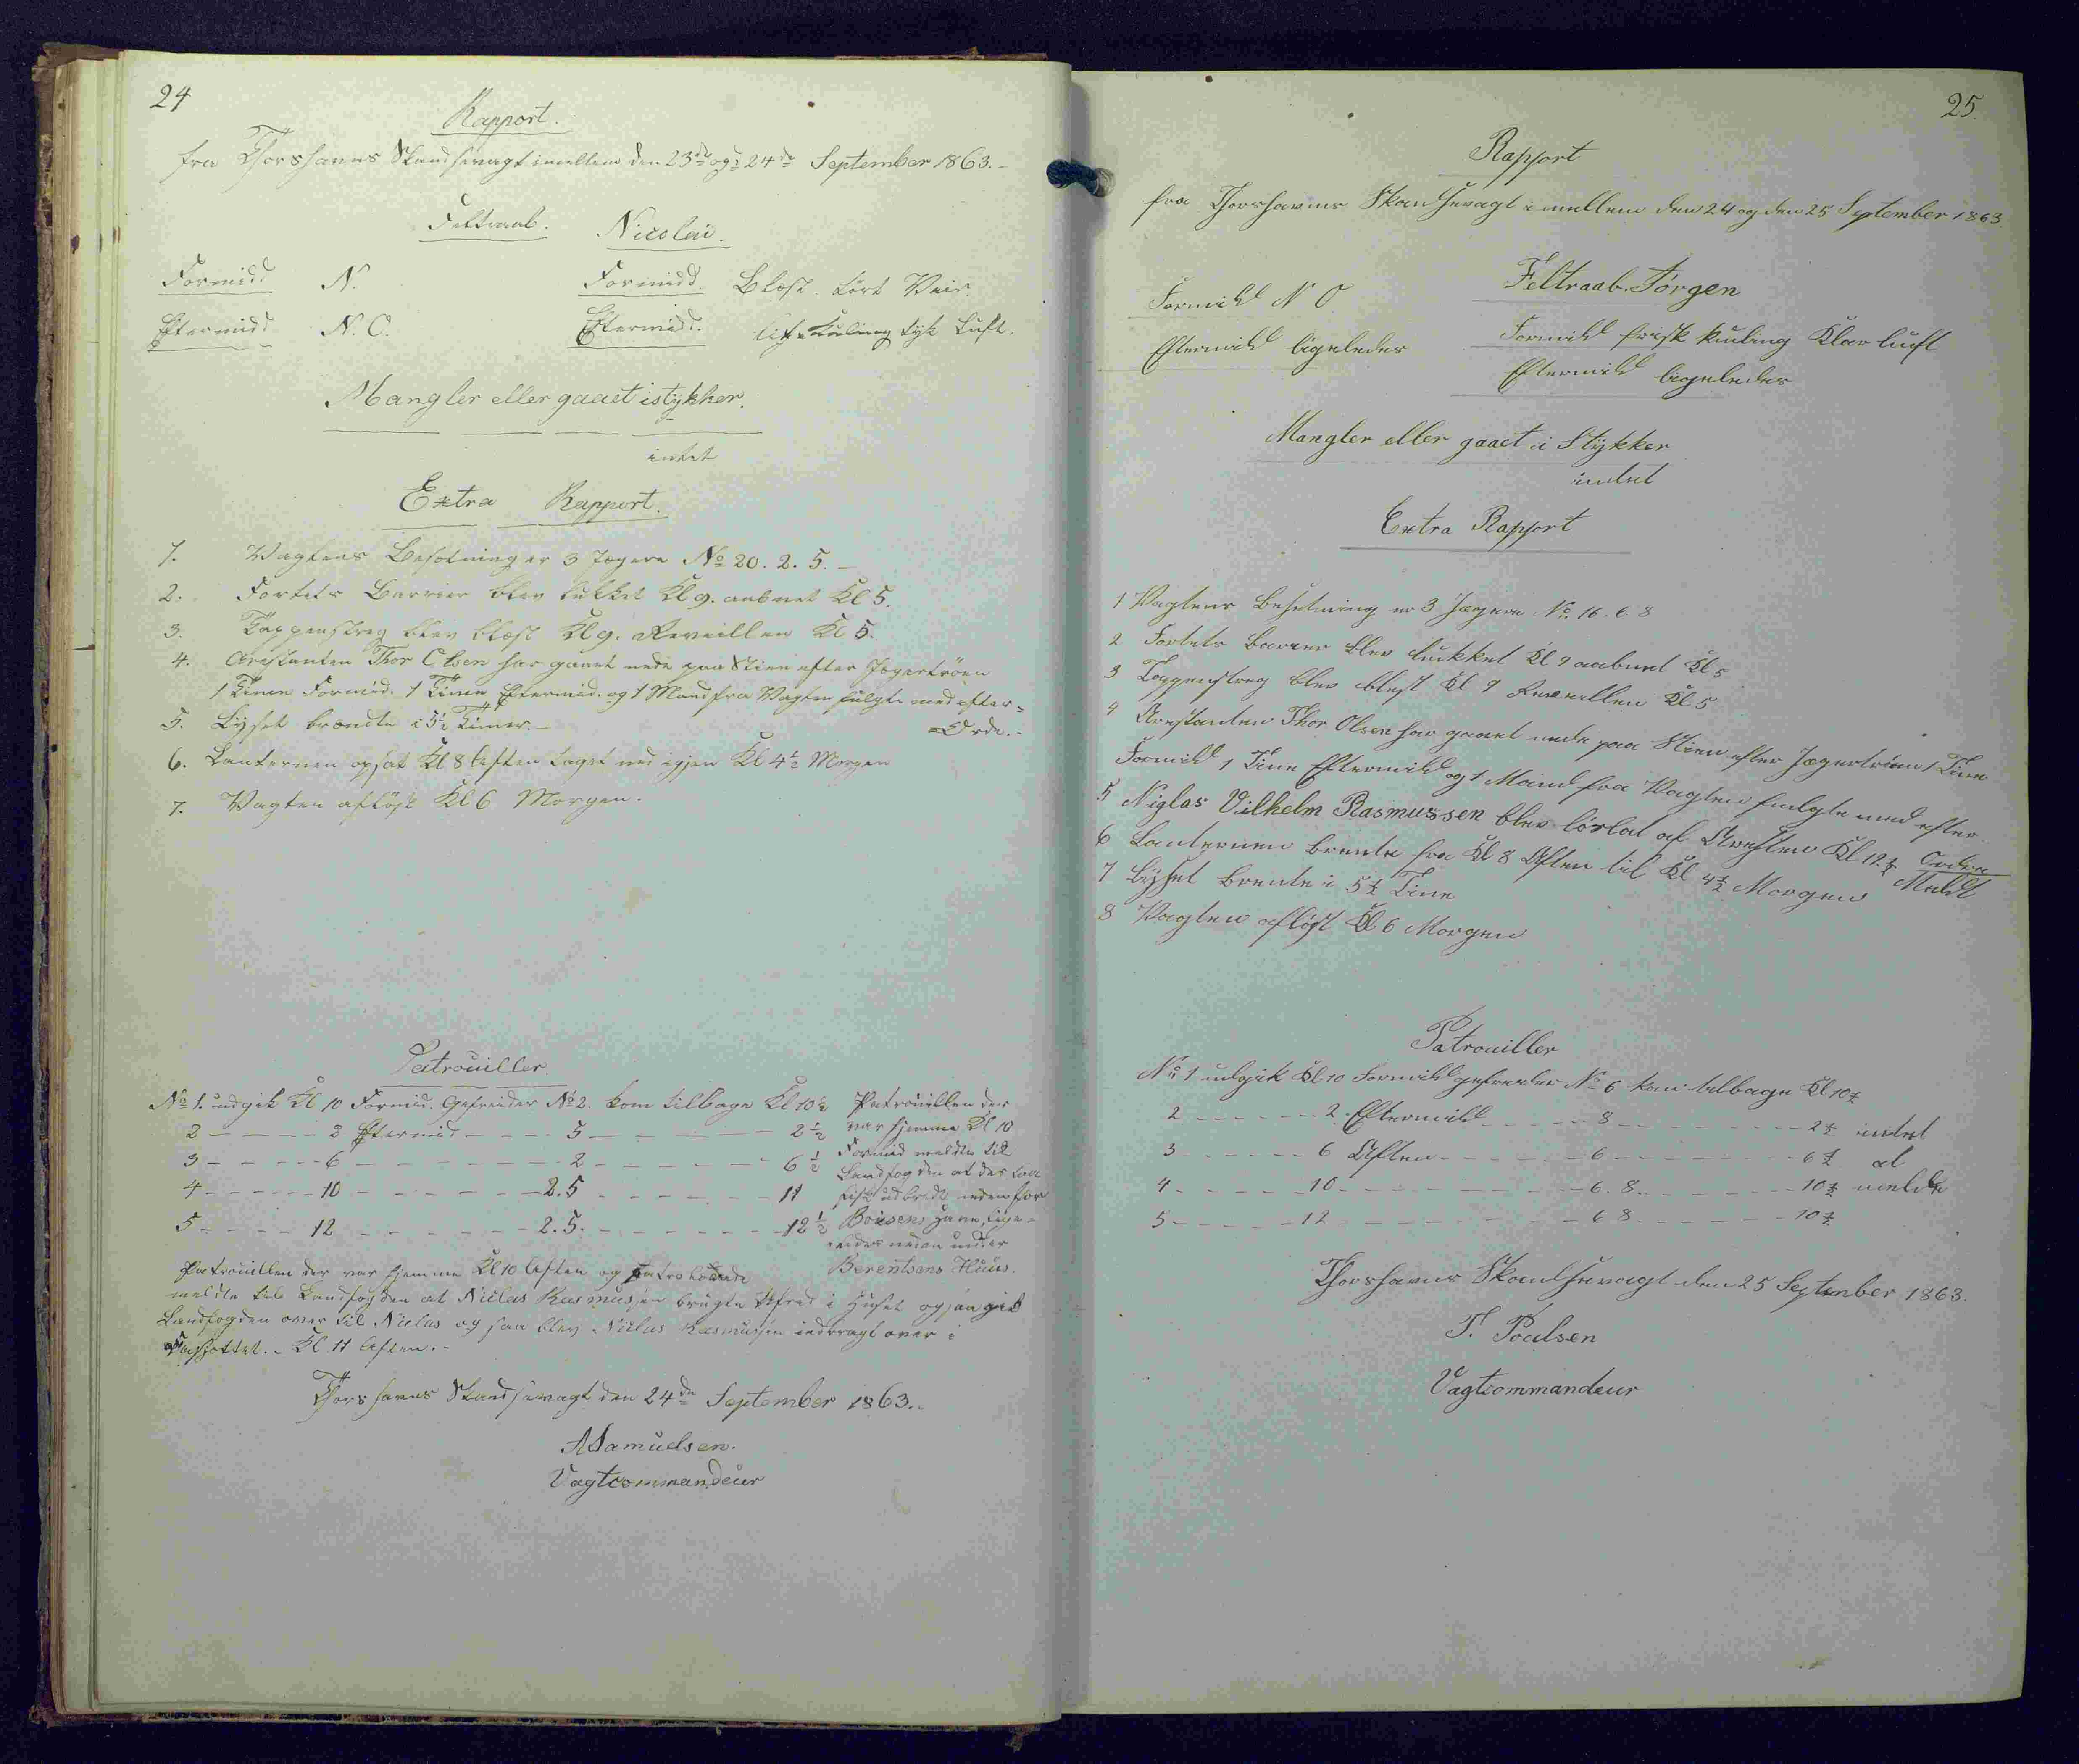 24
Rapport.
fra Thorshavns Skandsevagt imellem den 23de og 24de September 1863.-
Feltraab. Nicolai.
Formidd N. Formidd. Blæst tört Veir.
Eftermidd N.O. Eftermidd. lit. Kuling tyk Luft.
Mangler eller gaaet istykker.
intet
Extra Rapport.
1. Vagtens Besætning er 3 Jægere No 20. 2. 5. -
2. Fortets Barrier blev lukket Kl 9. aabnet Kl 5.
3. Tappenstreg blev blæst Kl 9. Reveillen Kl 5.
4. Arestanten Thor Olsen har gaaet nede paa Stien efter Jægertröen
1 Time Formid. 1 Time Eftermid. og 1 Mand fra Vagten fulgte med efter=
=Ordr.-
5. Lyset brændte i 5½ Timer.-
6. Lanternen opsat Kl 8 Aften taget ned igjen Kl 4½ Morgen
7. Vagten aflöst Kl 6 Morgen.
Patrouiller.
No 1. udgik Kl 10 Formid. Gefreider No 2. kom tilbage Kl 10½
2 - - - - 2 Eftermid. - - - 5 - - - - - - 2½
3 - - - - 6 - - - - - - - 2 - - - - - - 6½
4 - - - - 10 - - - - - - 2. 5 - - - - - - 11
5 - - - - 12 - - - - - - 2. 5. - - - - - - 12½
Patrouillen der
var hjemme Kl 10
Formid meldte til
Landfogden at der laa
fisk udbredt neden for
Boisens Have, lige=
ledes neden under
Berentsens Huus.
Patrouillen der var hjemme Kl 10 Aften og
meldte til Landfogden at Niclas Rasmussen brugte Ufred i Huset og saa gik
Landfogden over til Niclas og saa blev Niclas Rasmussen indbragt over i
Kl 11 Aften.-
Thorshavns Skandsevagt den 24de September 1863.-
A Samuelsen.
Vagtcommandeur
25.
Rapport
fra Thorshavns Skandsevagt imellem den 24 og den 25 September 1863.
Feltraab. Jörgen
Formidd N O Formidd frisk kuling Klar luft
Eftermidd ligeledes Eftermidd ligeledes
Mangler eller gaaet i Stykker
intet
Extra Rapport
1 Vagtens Besetning er 3 Jægere No 16. 6. 8
2 Fortets Barier blev lukket Kl 9 aabnet Kl 5
3 Tappenstreg blev blest Kl 9 Reveillen Kl 5
4 Arestanten Thor Olsen har gaaet nede paa Stien efter Jægertröien 1 Time
Formidd 1 Time Eftermidd og 1 Mand fra Vagten fulgte med efter
Ordre
5 Niglas Vilhelm Rasmussen blev lörlat af Aresten Kl 12½ Middt
6 Lanternen brente fra Kl 8 Aften til Kl 4½ Morgen
7 Lyset brente i 5½ Time
8 Vagten aflöst Kl 6 Morgen
Patrouiller
No 1 udgik Kl 10 Formidd gefreider No 6 kom tilbage Kl 10½
2 - - - - - 2 Eftermidd - - - - 8 - - - - - - 2½ intet
3 - - - - - 6 Aften - - - - - 6 - - - - - - 6½ at
4 - - - - - 10 - - - - - - - 6. 8. - - - - - 10½ melde
5 - - - - - 12 - - - - - - - 6 8 - - - - - 10½
Thorshavns Skandsevagt den 25 September 1863.
T. Poulsen
Vagtcommandeur